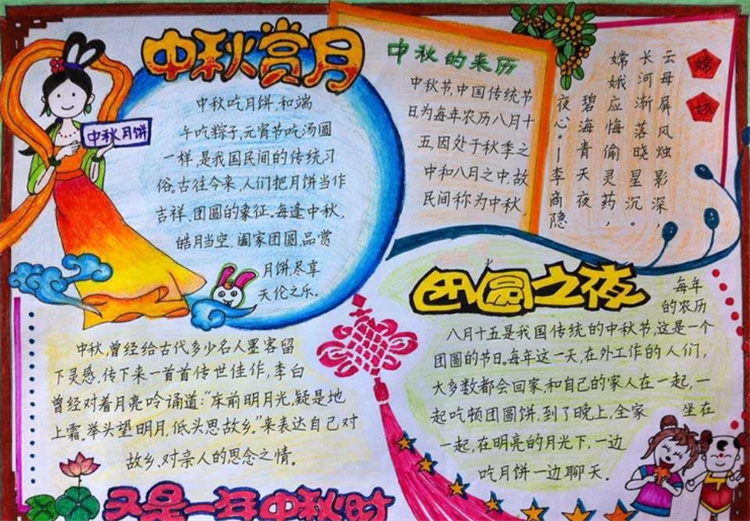 中秋赏月
中秋月饼
中秋吃月饼,和端
午吃粽子,元宵节吃汤圆
一样,是我国民间的传统习
俗,古往今来,人们把月饼当作
吉祥、团圆的象征,每逢中秋,
皓月当空,阖家团圆,品赏
月饼,尽享
天伦之乐。
中秋的来历
中秋节,中国传统节
日为每年农历八月十
五,因处于秋季之
中和八月之中,故
民间称为中秋。
嫦娥
云母屏风烛影深,
长河渐落晓星沉。
嫦娥应悔偷灵药,
碧海青天夜
夜心。—李商隐
中秋,曾经给古代多少名人墨客留
下灵感,传下来一首首传世佳作,李白
曾经对着月亮吟诵道:“床前明月光,疑是地
上霜,举头望明月,低头思故乡。”来表达自己对
故乡,对亲人的思念之情。
团圆之夜
每年
的农历
八月十五是我国传统的中秋节,这是一个
团圆的节日,每年这一天,在外工作的人们,
大多数都会回家,和自己的家人在一起,一
起吃顿团圆饼,到了晚上,全家坐在
一起,在明亮的月光下,一边
吃月饼一边聊天。
又是一年中秋时